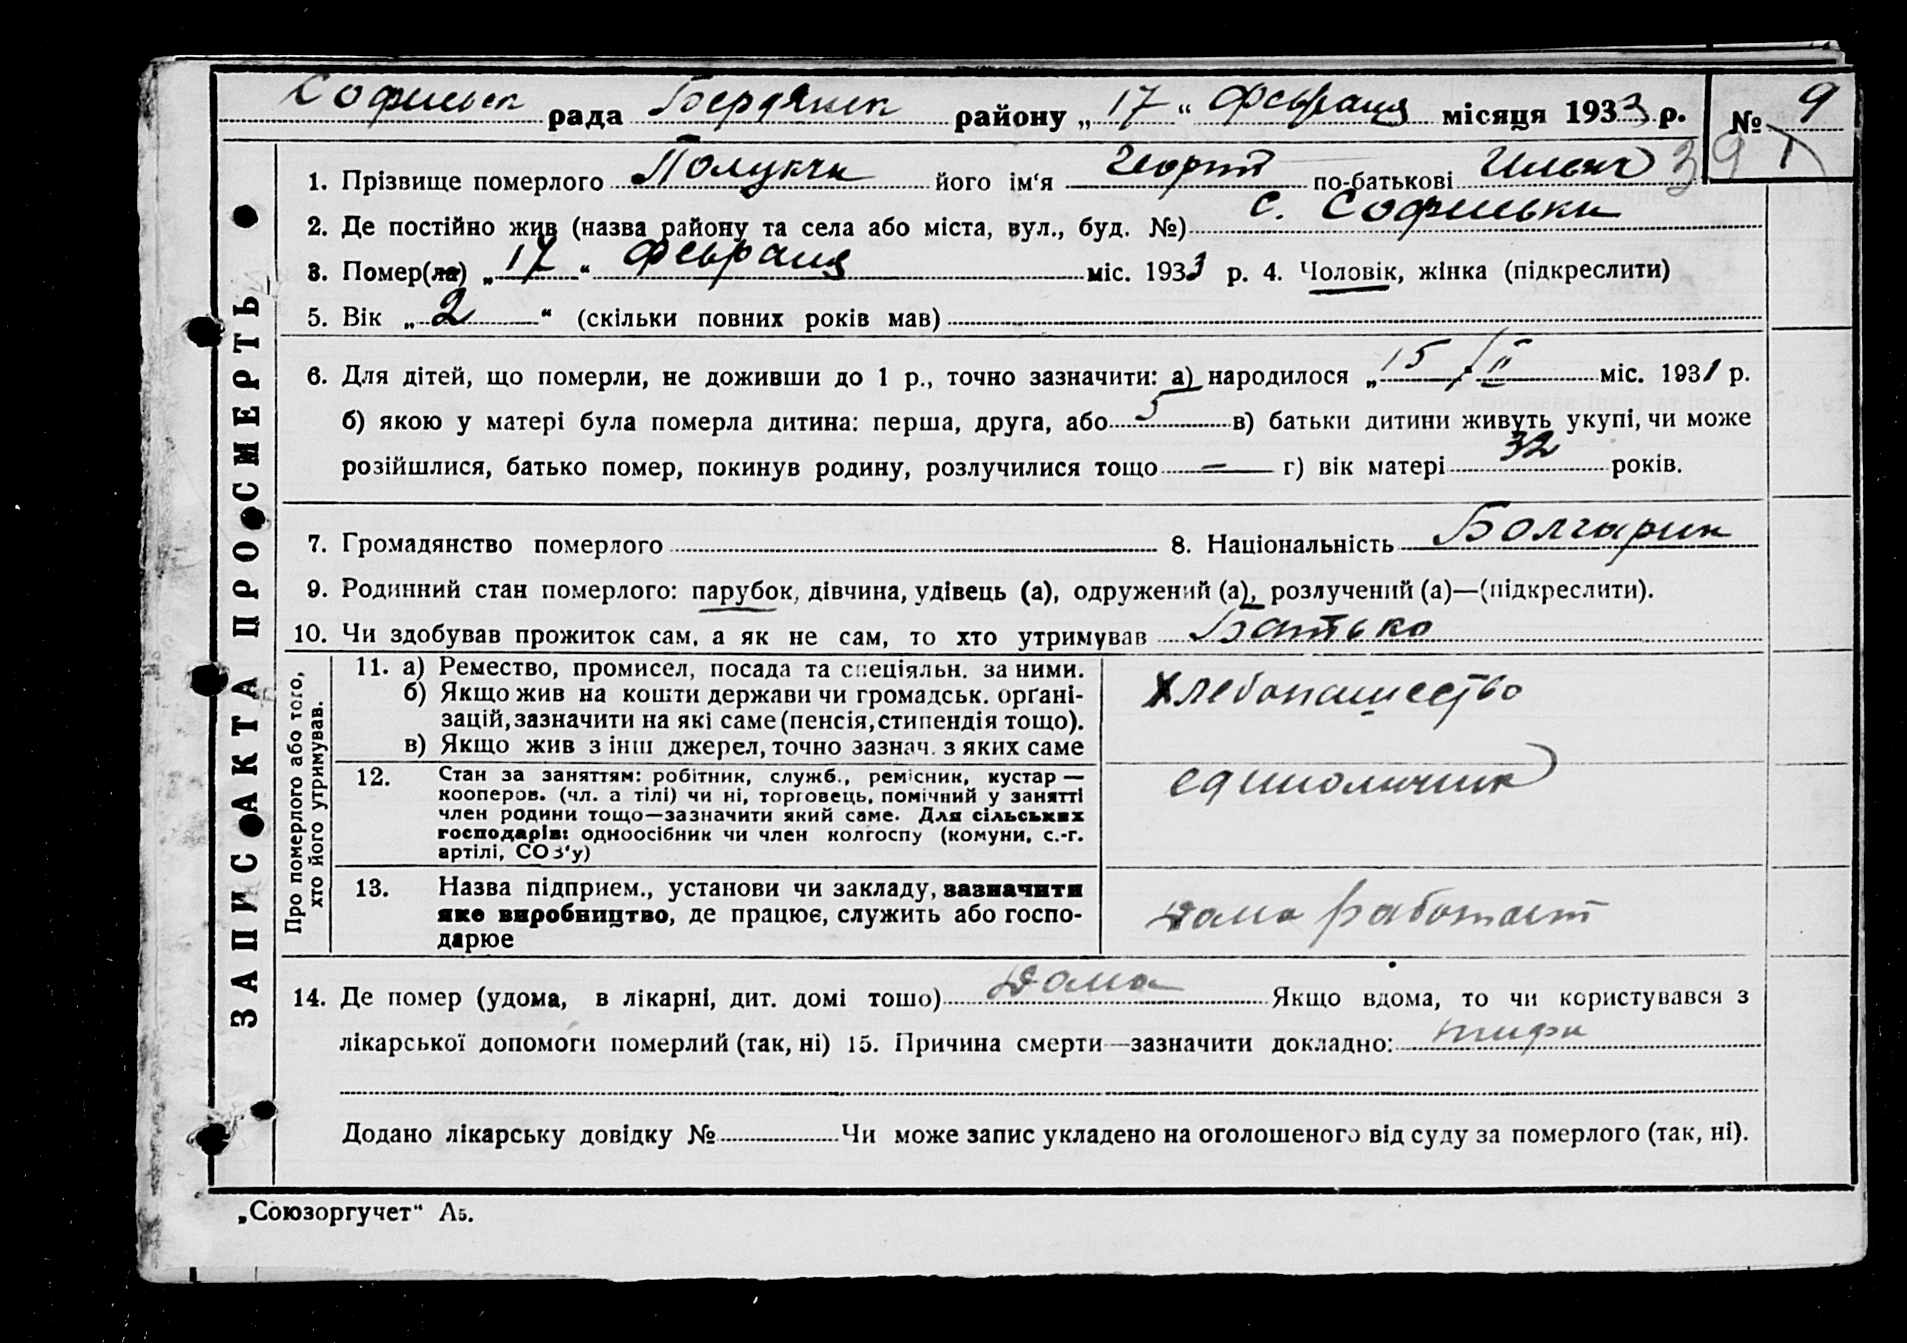 Софиевск рада Бердянск району „ 17 “ Февраля місяця 1933 р. № 9
39
1. Прізвище померлого його ім‘я Георгий по-батькові Ильич
2. Де постійно жив (назва району та села або міста, вул., буд. №) с. Софиевка
3. Помер(ла) „ 17 “ Февраля міс. 1933 р. 4. Чоловік, жінка (підкреслити)
5. Вік „ 2 “ (скільки повних років мав)
6. Для дітей, що померли, не доживши до 1 р., точно зазначити: а) народилося „ 15 / II міс. 1931 р.
б) якою у матері була померла дитина: перша, друга, або 5 в) батьки дитини живуть укупі, чи може
розійшлися, батько помер, покинув родину, розлучилися тощо — г) вік матері 32 років.
7. Громадянство померлого 8. Національність Болгарин
9. Родинний стан померлого: парубок, дівчина, удівець (а), одружений (а), розлучений (а)—(підкреслити).
10. Чи здобував прожиток сам, а як не сам, то хто утримував Батько
ЗАПИС АКТА ПРО СМЕРТЬ
Про померлого або того,
хто його утримував.
11. а) Ремество, промисел, посада та спеціяльн. за ними.
б) Якщо жив на кошти держави чи громадськ. орґані-
зацій, зазначити на які саме (пенсія, стипендія тощо).
в) Якщо жив з інш джерел, точно зазнач. з яких саме
Хлебопашество
12. Стан за заняттям: робітник, служб., ремісник, кустар —
кооперов. (чл. а тілі) чи ні, торговець, помічний у занятті
член родини тощо—зазначити який саме. Для сільських
господарів: одноосібник чи член колгоспу (комуни, с.-г.
артілі, СОЗ‘у)
единоличник
13. Назва підприєм., установи чи закладу, зазначити
яке виробництво, де працює, служить або госпо-
дарює
дома работает
14. Де помер (удома, в лікарні, дит. домі тошо) Дома Якщо вдома, то чи користувався з
лікарської допомоги померлий (так, ні) 15. Причина смерти—зазначити докладно:
Додано лікарську довідку № Чи може запис укладено на оголошеного від суду за померлого (так, ні).
„Союзоргучет“ А5.